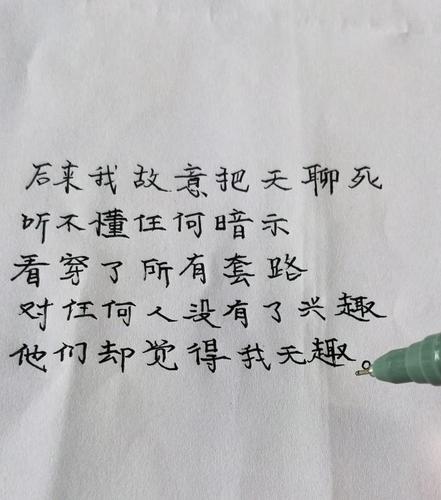 后来我故意把天聊死
听不懂任何暗示
看穿了所有套路
对任何人没有了兴趣
他们却觉得我无趣。